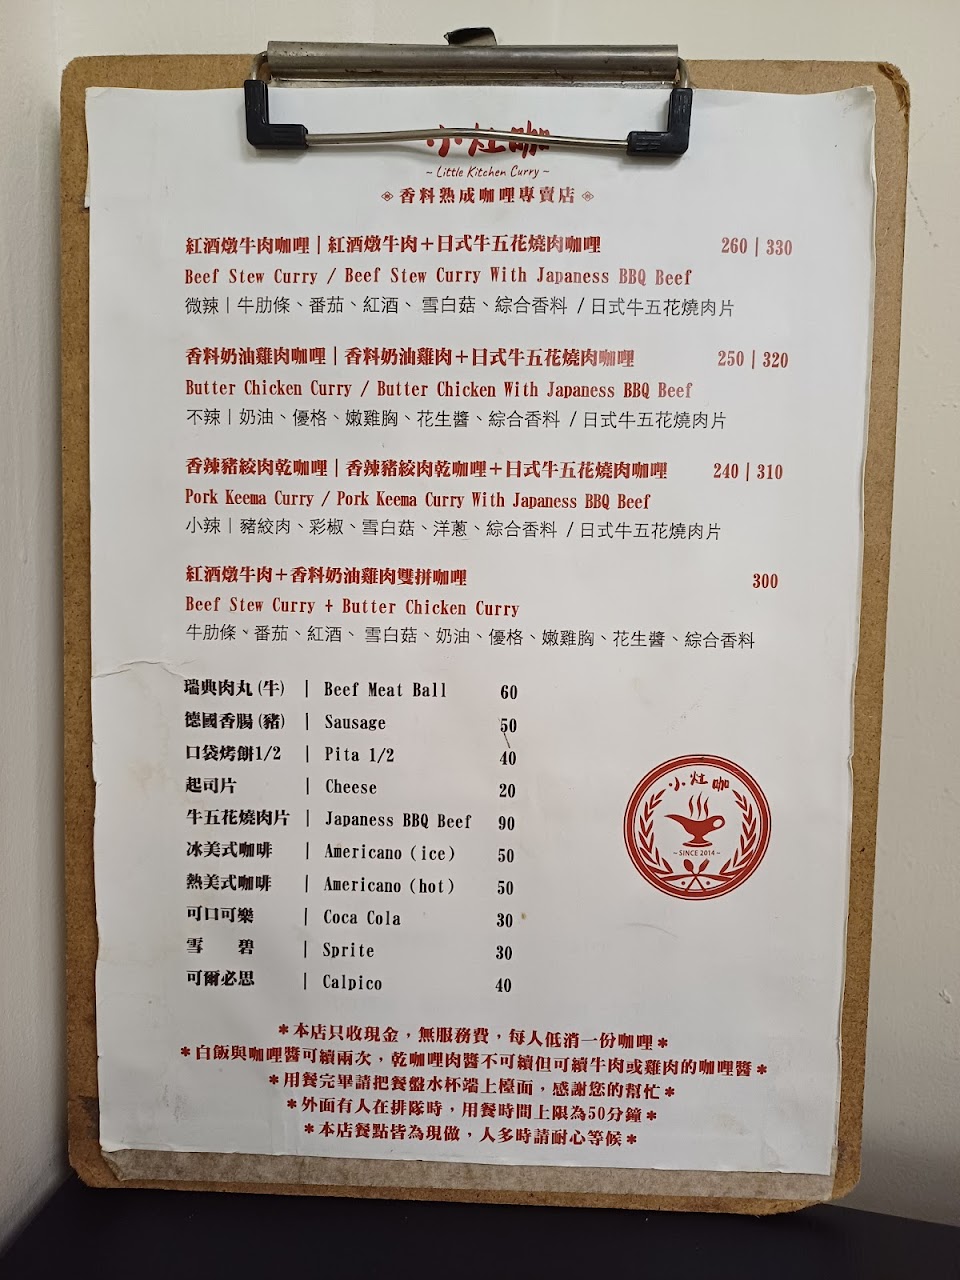 小灶咖
~ Little Kitchen Curry ~
香料熟成咖哩專賣店
紅酒燉牛肉咖哩｜紅酒燉牛肉＋日式牛五花燒肉咖哩 260｜330
Beef Stew Curry / Beef Stew Curry With Japaness BBQ Beef
微辣｜牛肋條、番茄、紅酒、雪白菇、綜合香料 / 日式牛五花燒肉片
香料奶油雞肉咖哩｜香料奶油雞肉＋日式牛五花燒肉咖哩 250｜320
Butter Chicken Curry / Butter Chicken With Japaness BBQ Beef
不辣｜奶油、優格、嫩雞胸、花生醬、綜合香料 / 日式牛五花燒肉片
香辣豬絞肉乾咖哩｜香辣豬絞肉乾咖哩＋日式牛五花燒肉咖哩 240｜310
Pork Keema Curry / Pork Keema Curry With Japaness BBQ Beef
小辣｜豬絞肉、彩椒、雪白菇、洋蔥、綜合香料 / 日式牛五花燒肉片
紅酒燉牛肉＋香料奶油雞肉雙拼咖哩 300
Beef Stew Curry + Butter Chicken Curry
牛肋條、番茄、紅酒、雪白菇、奶油、優格、嫩雞胸、花生醬、綜合香料
瑞典肉丸(牛)｜Beef Meat Ball 60
德國香腸(豬)｜Sausage 50
口袋烤餅1/2｜Pita 1/2 40
起司片｜Cheese 20
牛五花燒肉片｜Japaness BBQ Beef 90
冰美式咖啡｜Americano (ice) 50
熱美式咖啡｜Americano (hot) 50
可口可樂｜Coca Cola 30
雪碧｜Sprite 30
可爾必思｜Calpico 40
小灶咖
~ SINCE 2014 ~
＊本店只收現金，無服務費，每人低消一份咖哩＊
＊白飯與咖哩醬可續兩次，乾咖哩肉醬不可續但可續牛肉或雞肉的咖哩醬＊
＊用餐完畢請把餐盤水杯端上檯面，感謝您的幫忙＊
＊外面有人在排隊時，用餐時間上限為50分鐘＊
＊本店餐點皆為現做，人多時請耐心等候＊